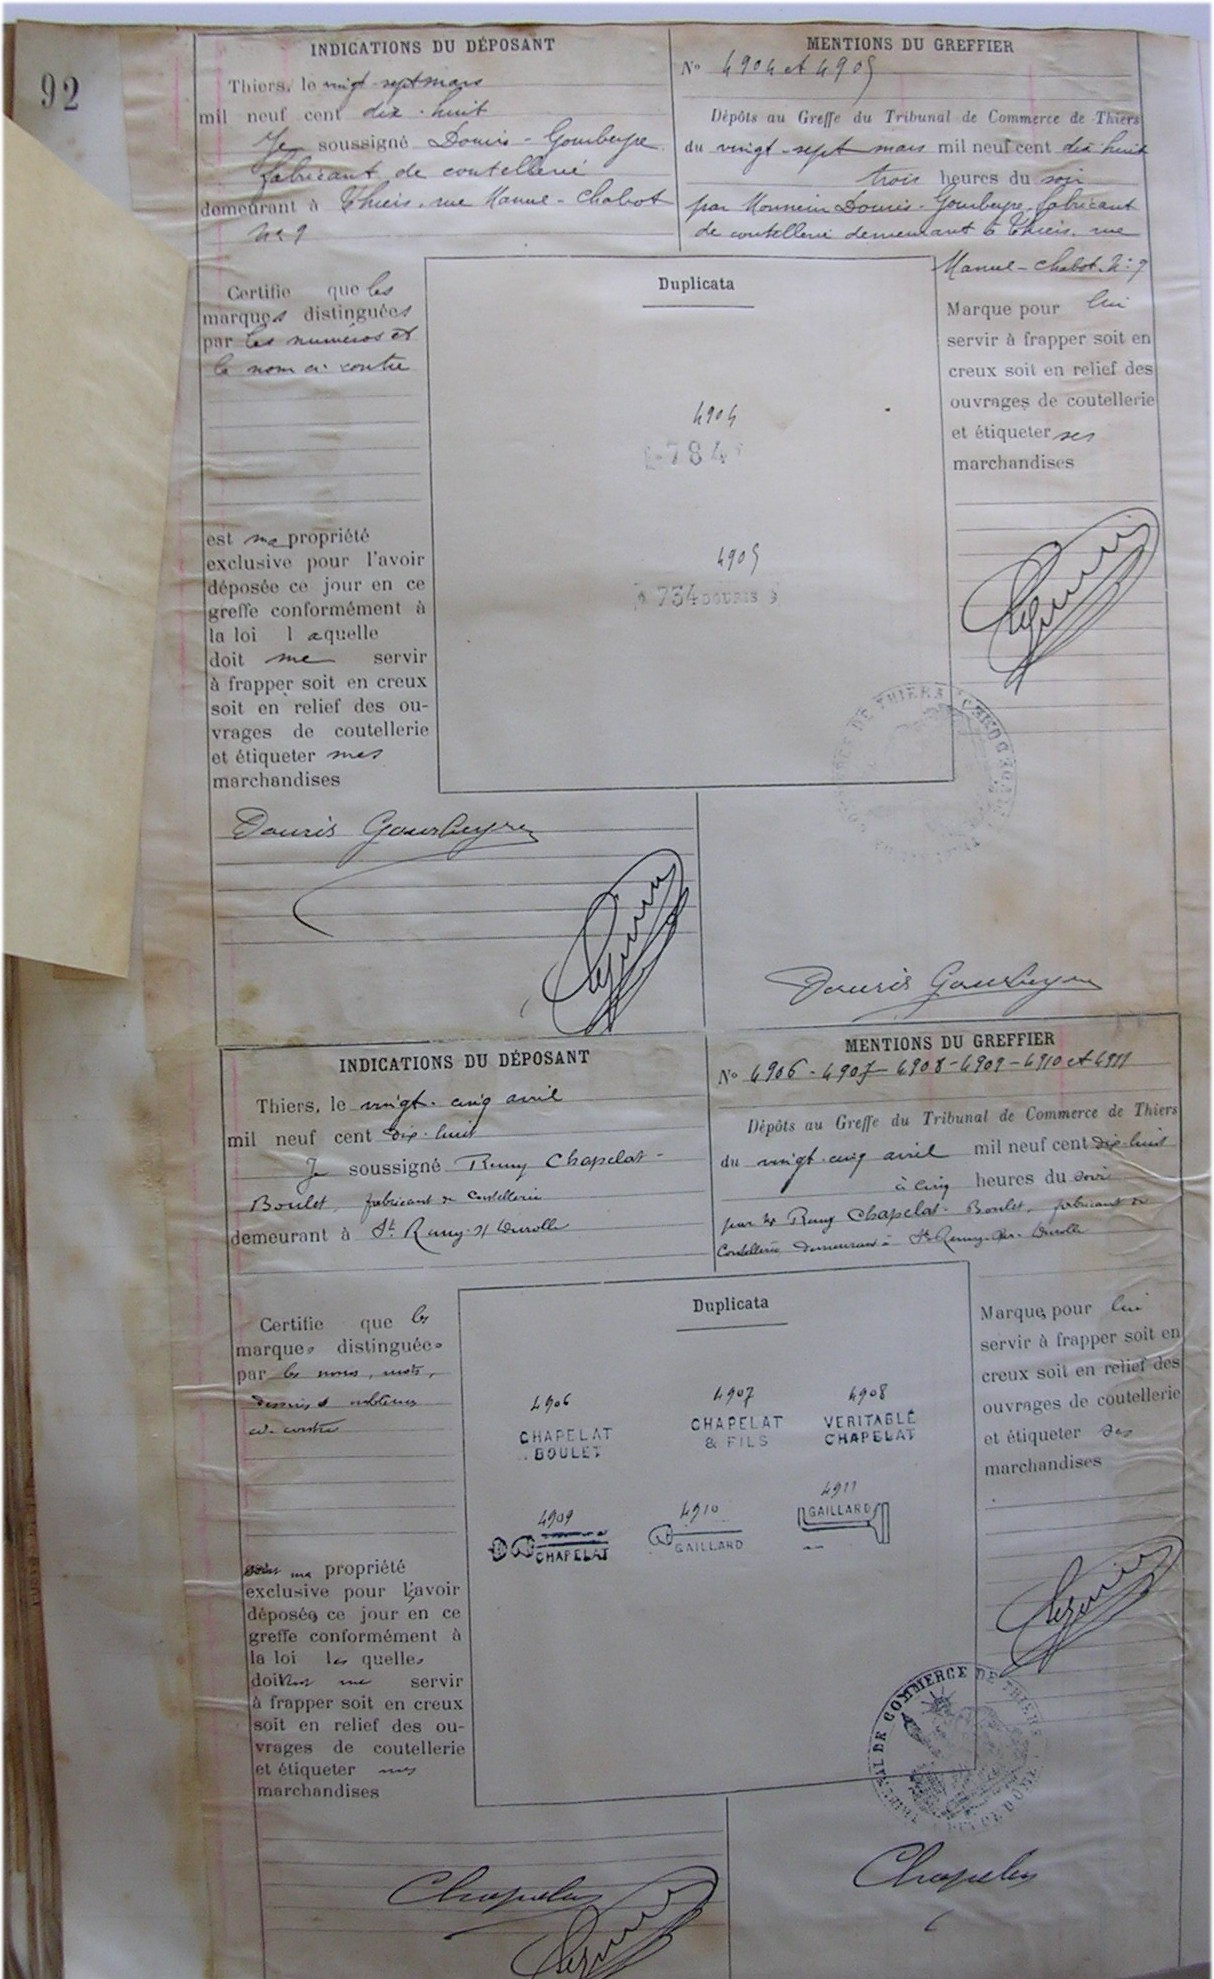 92
INDICATIONS DU DÉPOSANT
Thiers, le vingt-sept mars
mil neuf cent dix-huit
Je soussigné Douris-Gourbeyre
fabricant de coutellerie
demeurant à Thiers, rue Manuel-Chabot
No 9
MENTIONS DU GREFFIER
No 4904 et 4905
Dépôts au Greffe du Tribunal de Commerce de Thiers
du vingt-sept mars mil neuf cent dix huit
trois heures du soir
par Monsieur Douris-Gourbeyre, fabricant
de coutellerie demeurant à Thiers, rue
Manuel-Chabot No 9
Certifie que les
marques distinguées
par les numéros et
le nom ci-contre
est ma propriété
exclusive pour l'avoir
déposée ce jour en ce
greffe conformément à
la loi laquelle
doit me servir
à frapper soit en creux
soit en relief des ou-
vrages de coutellerie
et étiqueter mes
marchandises
Duplicata
4904
784
4905
734 DOURIS
Marque pour lui
servir à frapper soit en
creux soit en relief des
ouvrages de coutellerie
et étiqueter ses
marchandises
Douris Gourbeyre
Douris Gourbeyre
INDICATIONS DU DÉPOSANT
Thiers, le vingt-cinq avril
mil neuf cent dix-huit
Je soussigné Remy Chapelat-
Boulet, fabricant de coutellerie
demeurant à St Remy s/ Durolle
MENTIONS DU GREFFIER
No 4906-4907-4908-4909-4910 et 4911
Dépôts au Greffe du Tribunal de Commerce de Thiers
du vingt-cinq avril mil neuf cent dix-huit
à cinq heures du soir
par Mr Remy Chapelat-Boulet, fabricant de
coutellerie demeurant à St Remy-sur-Durolle
Certifie que les
marques distinguées
par les noms, mots,
dessins & emblèmes
ci-contre
sont ma propriété
exclusive pour l'avoir
déposée ce jour en ce
greffe conformément à
la loi lesquelles
doivent me servir
à frapper soit en creux
soit en relief des ou-
vrages de coutellerie
et étiqueter mes
marchandises
Duplicata
4906
CHAPELAT
BOULET
4907
CHAPELAT
& FILS
4908
VERITABLE
CHAPELAT
4909
CHAPELAT
4910
GAILLARD
4911
GAILLARD
Marque pour lui
servir à frapper soit en
creux soit en relief des
ouvrages de coutellerie
et étiqueter ses
marchandises
TRIBUNAL DE COMMERCE DE THIERS
Chapelat
Chapelat